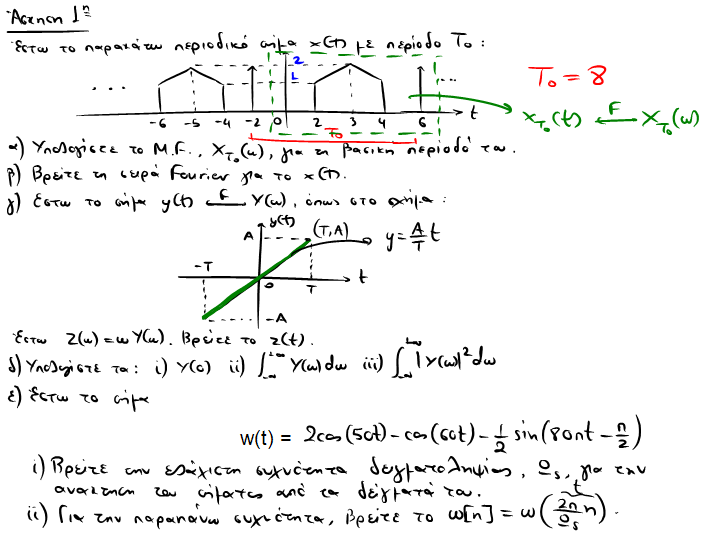 Άσκηση 1η
Έστω το παρακάτω περιοδικό σήμα x(t) με περίοδο T₀ :
2
1
... ...
-6 -5 -4 -2 0 2 3 4 6 t
T₀
T₀ = 8
x_T₀(t) ←F— X_T₀(ω)
α) Υπολογίστε το Μ.F., X_T₀(ω), για τη βασική περίοδό του.
β) Βρείτε τη σειρά Fourier για το x(t).
γ) Έστω το σήμα y(t) ←F— Y(ω), όπως στο σχήμα :
y(t)
A (T, A) y = A/T t
-T 0 T t
-A
Έστω Z(ω) = ωY(ω). Βρείτε το z(t).
δ) Υπολογίστε τα: i) Y(0) ii) ∫_{-∞}^{+∞} Y(ω)dω iii) ∫_{-∞}^{+∞} |Y(ω)|² dω
ε) Έστω το σήμα
w(t) = 2cos(50t) - cos(60t) - 1/2 sin(80πt - π/2)
i) Βρείτε την ελάχιστη συχνότητα δειγματοληψίας, Ωs, για την
ανάκτηση του σήματος από τα δείγματά του.
t
ii) Για την παραπάνω συχνότητα, βρείτε το w[n] = w(2π/Ωs n).